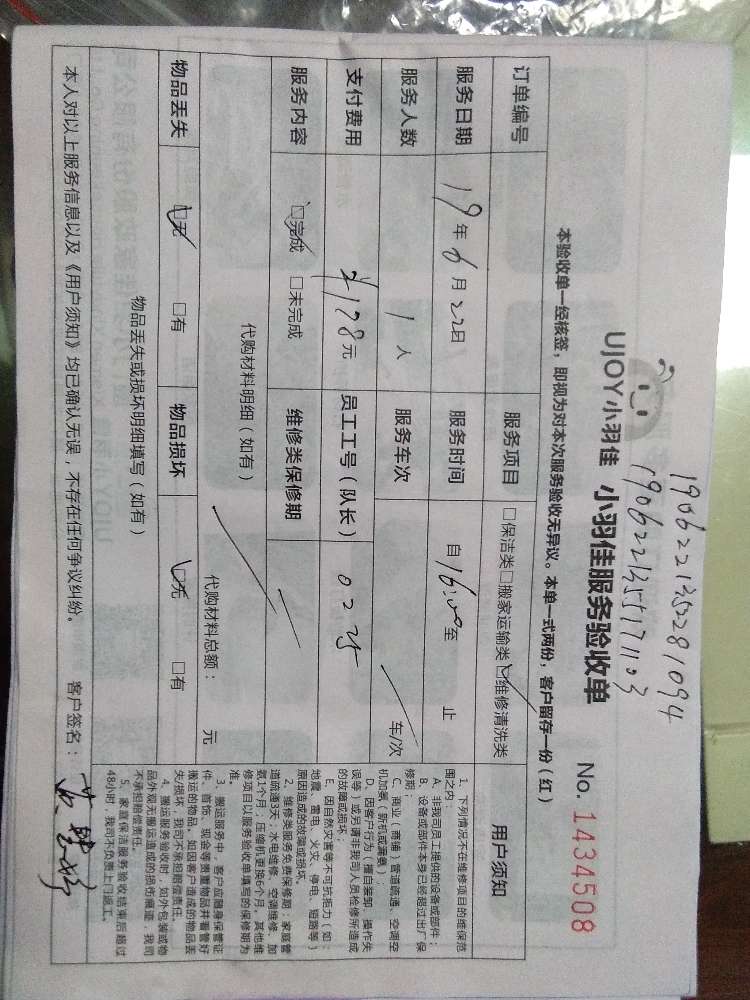 19062213528 1094
19062213551 71103
UJOY小羽佳 小羽佳服务验收单 No. 1434508
本验收单一经核签，即视为对本次服务验收无异议。本单一式两份，客户留存一份（红）
订单编号 服务项目 □保洁类□搬家运输类□维修清洗类 用户须知
服务日期 19年6月22日 服务时间 自16:00至 止
服务人数 1人 服务车次 车/次
支付费用 ¥178元 员工工号（队长） 0225
服务内容 □完成 □未完成 维修类保修期
代购材料明细（如有） 代购材料总额： 元
物品丢失 □无 □有 物品损坏 □无 □有
物品丢失或损坏明细填写（如有）
1、下列情况不在维修项目的维保范
围之内
A、非我司员工提供的设备或部件；
B、设备或部件本身已经超过出厂保
修期；
C、商业（商铺）管道疏通、空调空
机加氨（新机或漏氨）；
D、因客户行为（擅自装卸、操作失
误等）或另请非我司人员检修所造成
的故障或损坏；
E、因自然灾害等不可抗拒力（如：
地震、雷电、火灾、停电、短路等）
原因造成的故障或损坏。
2、维修类服务免费保修期：家庭管
道疏通3天，水电维修、空调维修、加
氨1个月；压缩机更换6个月，其他维
修项目以服务验收单填写的保修期为
准。
3、搬运服务中，客户应随身保管证
件、首饰、现金等贵重物品并看管好
搬运的物品，如因客户造成的物品丢
失/损坏，我司不承担赔偿责任。
4、搬运服务验收时，如外包装或物
品外观无搬运造成的损伤痕迹，我司
不承担赔偿责任。
5、家庭保洁服务验收结束后超过
48小时，我司不负责上门返工。
本人对以上服务信息以及《用户须知》均已确认无误，不存在任何争议纠纷。 客户签名：